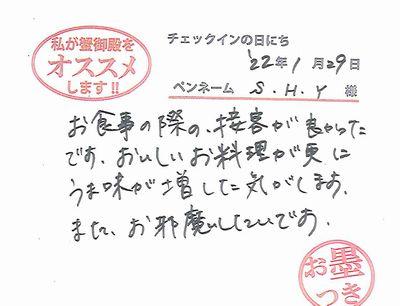 私が蟹御殿を
オススメ
します!!
チェックインの日にち
'22年1月29日
ペンネーム S.H.Y 様
お食事の際の、接客が良かった
です。おいしいお料理が更に
うま味が増した気がします。
また、お邪魔したいです。
お墨
つき